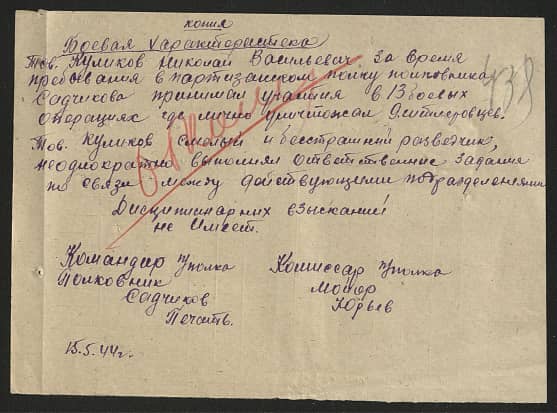 копия
Боевая характеристика
Тов. Куликов Николай Васильевич за время
пребывания в партизанском полку полковника
Садчикова принимал участия в 13 боевых
операциях где лично уничтожил 9 гитлеровцев.
Тов. Куликов смелый и бесстрашный разведчик,
неоднократно выполнял ответственные задания
по связи между действующими подразделениями
Дисциплинарных взысканий
не имеет.
Командир полка
Комиссар полка
Полковник
Майор
Садчиков
Юрьев
Печать.
15.5.44г.
438